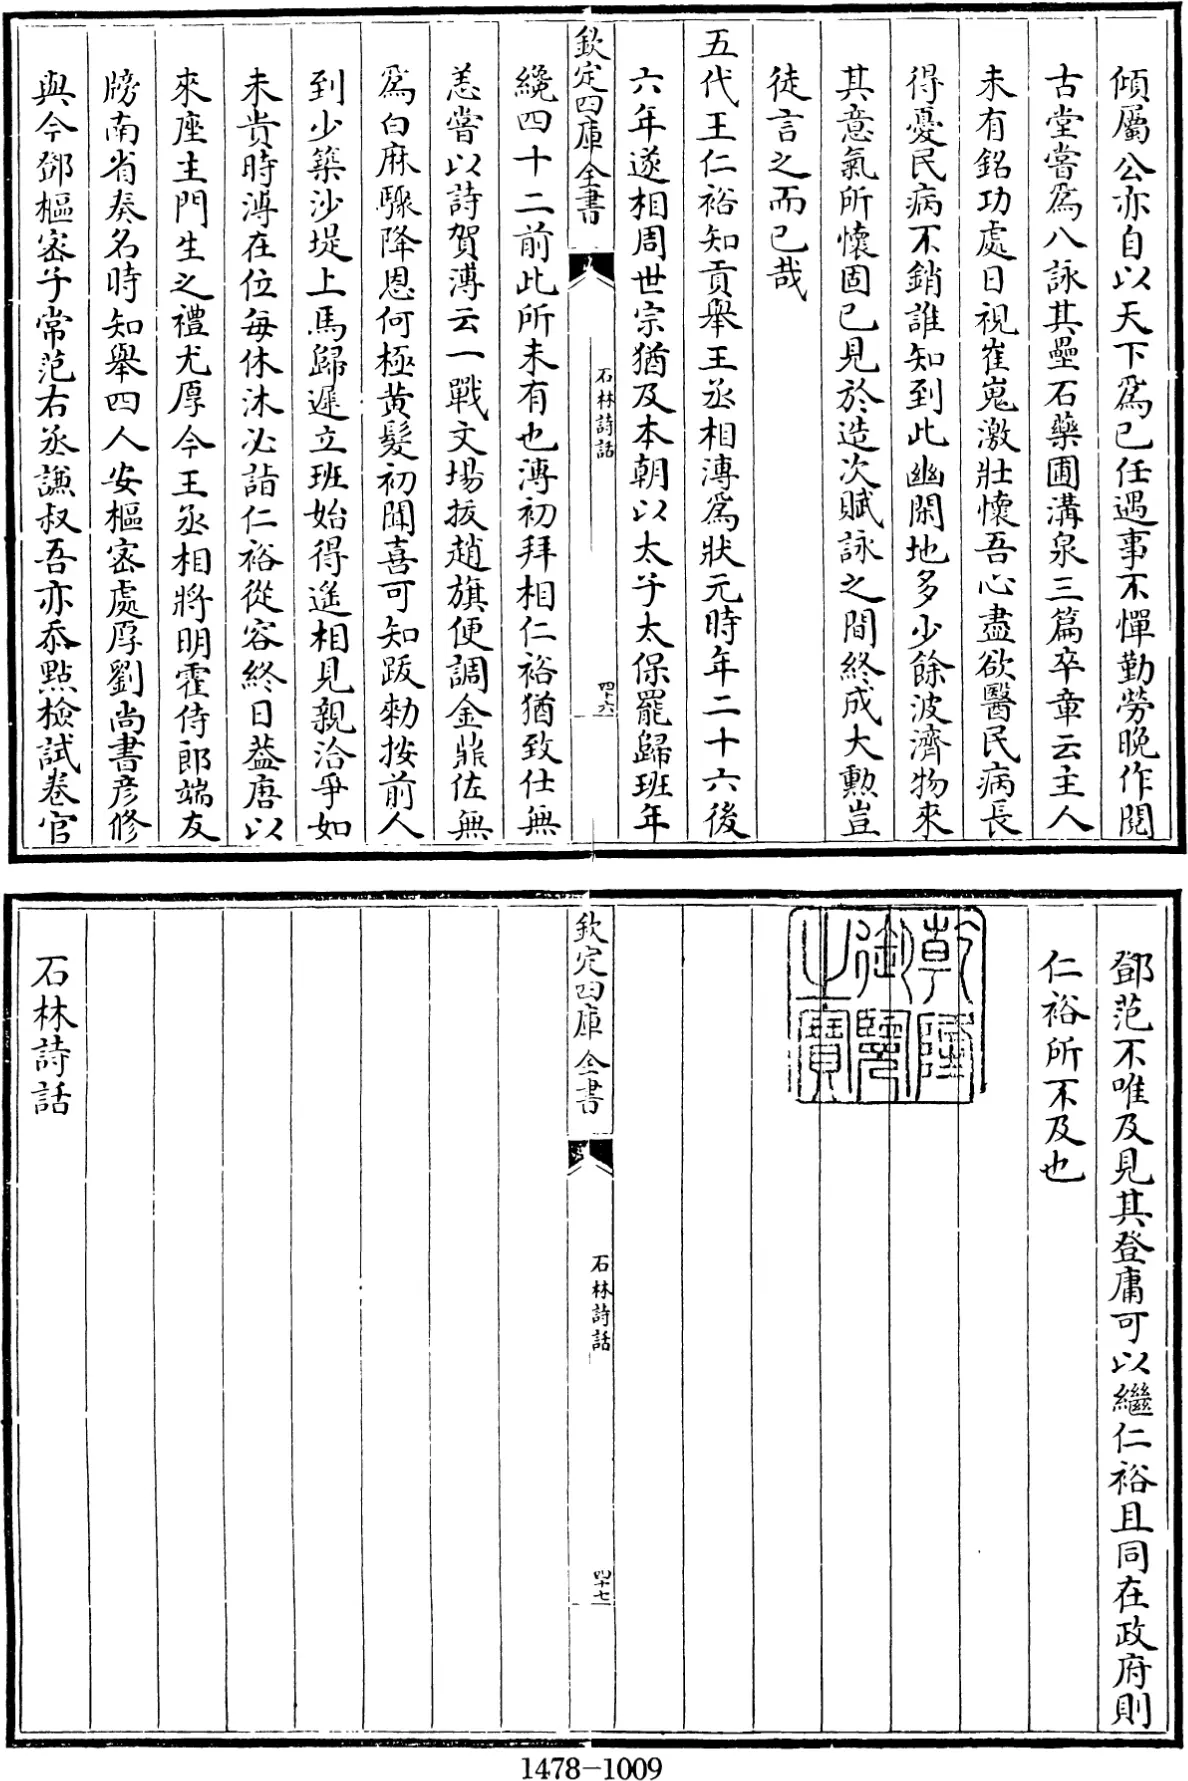 傾屬公亦自以天下爲己任遇事不憚勤勞晩作閱
古堂嘗爲八詠其壘石藥圃溝泉三篇卒章云主人
未有銘功處日視崔嵬激壯懷吾心盡欲醫民病長
得憂民病不銷誰知到此幽閑地多少餘波濟物來
其意氣所懷固已見於造次賦詠之間終成大勲豈
徒言之而已哉
五代王仁裕知貢舉王丞相溥爲狀元時年二十六後
六年遂相周世宗猶及本朝以太子太保罷歸班年
欽定四庫全書
石林詩話
四十六
纔四十二前此所未有也溥初拜相仁裕猶致仕無
恙嘗以詩賀溥云一戰文塲拔趙旗便調金鼎佐無
爲白麻驟降恩何極黄髮初聞喜可知跋勑按前人
到少築沙堤上馬歸遲立班始得遥相見親洽爭如
未貴時溥在位每休沐必詣仁裕從容終日葢唐以
來座主門生之禮尤厚今王丞相將明霍侍郎端友
牓南省奏名時知舉四人安樞宻處厚劉尚書彦修
與今鄧樞宻子常范右丞謙叔吾亦忝點檢試卷官
鄧范不唯及見其登庸可以繼仁裕且同在政府則
仁裕所不及也
乾隆御覽之寶
欽定四庫全書
石林詩話
四十七
石林詩話
1478-1009